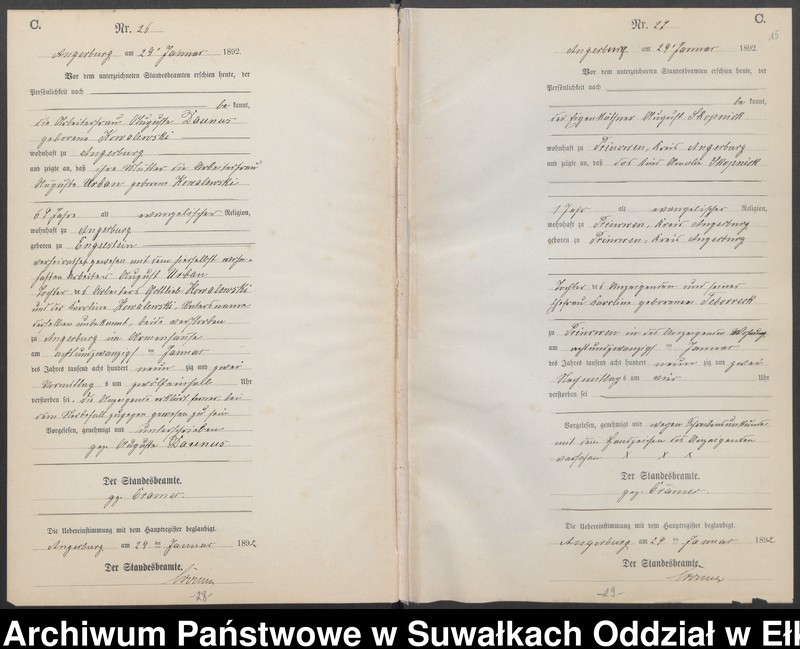 C.
Nr. 26
Angerburg am 29t Januar 1892.
Vor dem unterzeichneten Standesbeamten erschien heute, der
Persönlichkeit nach
be kannt,
die Arbeiterfrau Auguste Daunus
geborene Kowalewski
wohnhaft zu Angerburg
und zeigte an, daß ihre Mutter die Arbeiterfrau
Auguste Urban geborene Kowalewski
69 Jahre alt evangelischer Religion,
wohnhaft zu Angerburg
geboren zu Engelstein
verheirathet gewesen mit dem hierselbst
Arbeiter August Urban
Tochter des Arbeiters Gottlieb Kowalewski
und der Karoline Kowalewski,
derselben unbekannt, beide verstorben
zu Angerburg im Armenhause
am achtundzwanzigsten Januar
des Jahres tausend acht hundert neunzig und zwei
Vormittags um Uhr
verstorben sei. Die Anzeigende erklärt ferner bei
dem Sterbefall zugegen gewesen zu sein
Vorgelesen, genehmigt und unterschrieben
gez. Auguste Daunus
Der Standesbeamte.
gez. Cramer.
Die Uebereinstimmung mit dem Hauptregister beglaubigt.
Angerburg am 29ten Januar 1892
Der Standesbeamte.
Cramer
-28-
C.
15
Nr. 27
Angerburg am 29t Januar 1892
Vor dem unterzeichneten Standesbeamten erschien heute, der
Persönlichkeit nach
be kannt,
der Eigenkäthner August Skopnick
wohnhaft zu Prinowen, Kreis Angerburg
und zeigte an, daß das Kind Amalie Skopnick
1 Jahr alt evangelischer Religion,
wohnhaft zu Prinowen, Kreis Angerburg
geboren zu Prinowen, Kreis Angerburg
Tochter des Anzeigenden und seiner
Ehefrau Karoline geborenen
zu Prinowen in des Anzeigenden Wohnung
am achtundzwanzigsten Januar
des Jahres tausend acht hundert neunzig und zwei
Nachmittags um vier Uhr
verstorben sei
Vorgelesen, genehmigt und wegen Schreibensunkunde
mit dem Handzeichen des Anzeigenden
versehen X X X
Der Standesbeamte.
gez. Cramer.
Die Uebereinstimmung mit dem Hauptregister beglaubigt.
Angerburg am 29ten Januar 1892
Der Standesbeamte.
Cramer
-29-
Archiwum Państwowe w Suwałkach Oddział w Ełk